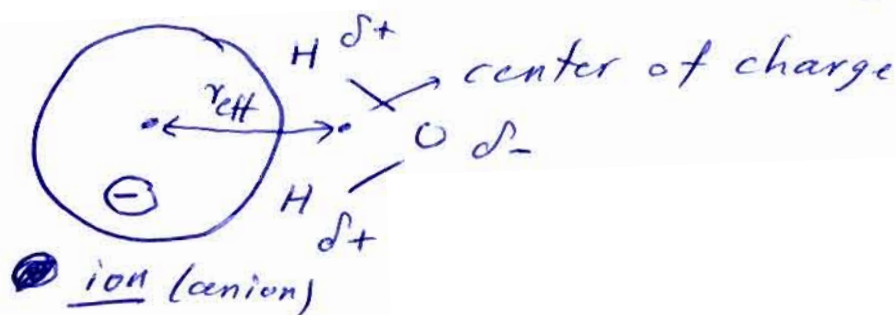 H δ+
r_eff
center of charge
O δ-
⊖
H
δ+
ion (anion)